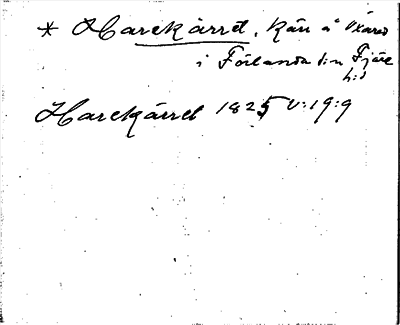 * Harekärret, Kärr å Öxared
i Förlanda s:n Fjäre
h:d
Harekärret 1825 V:19:9